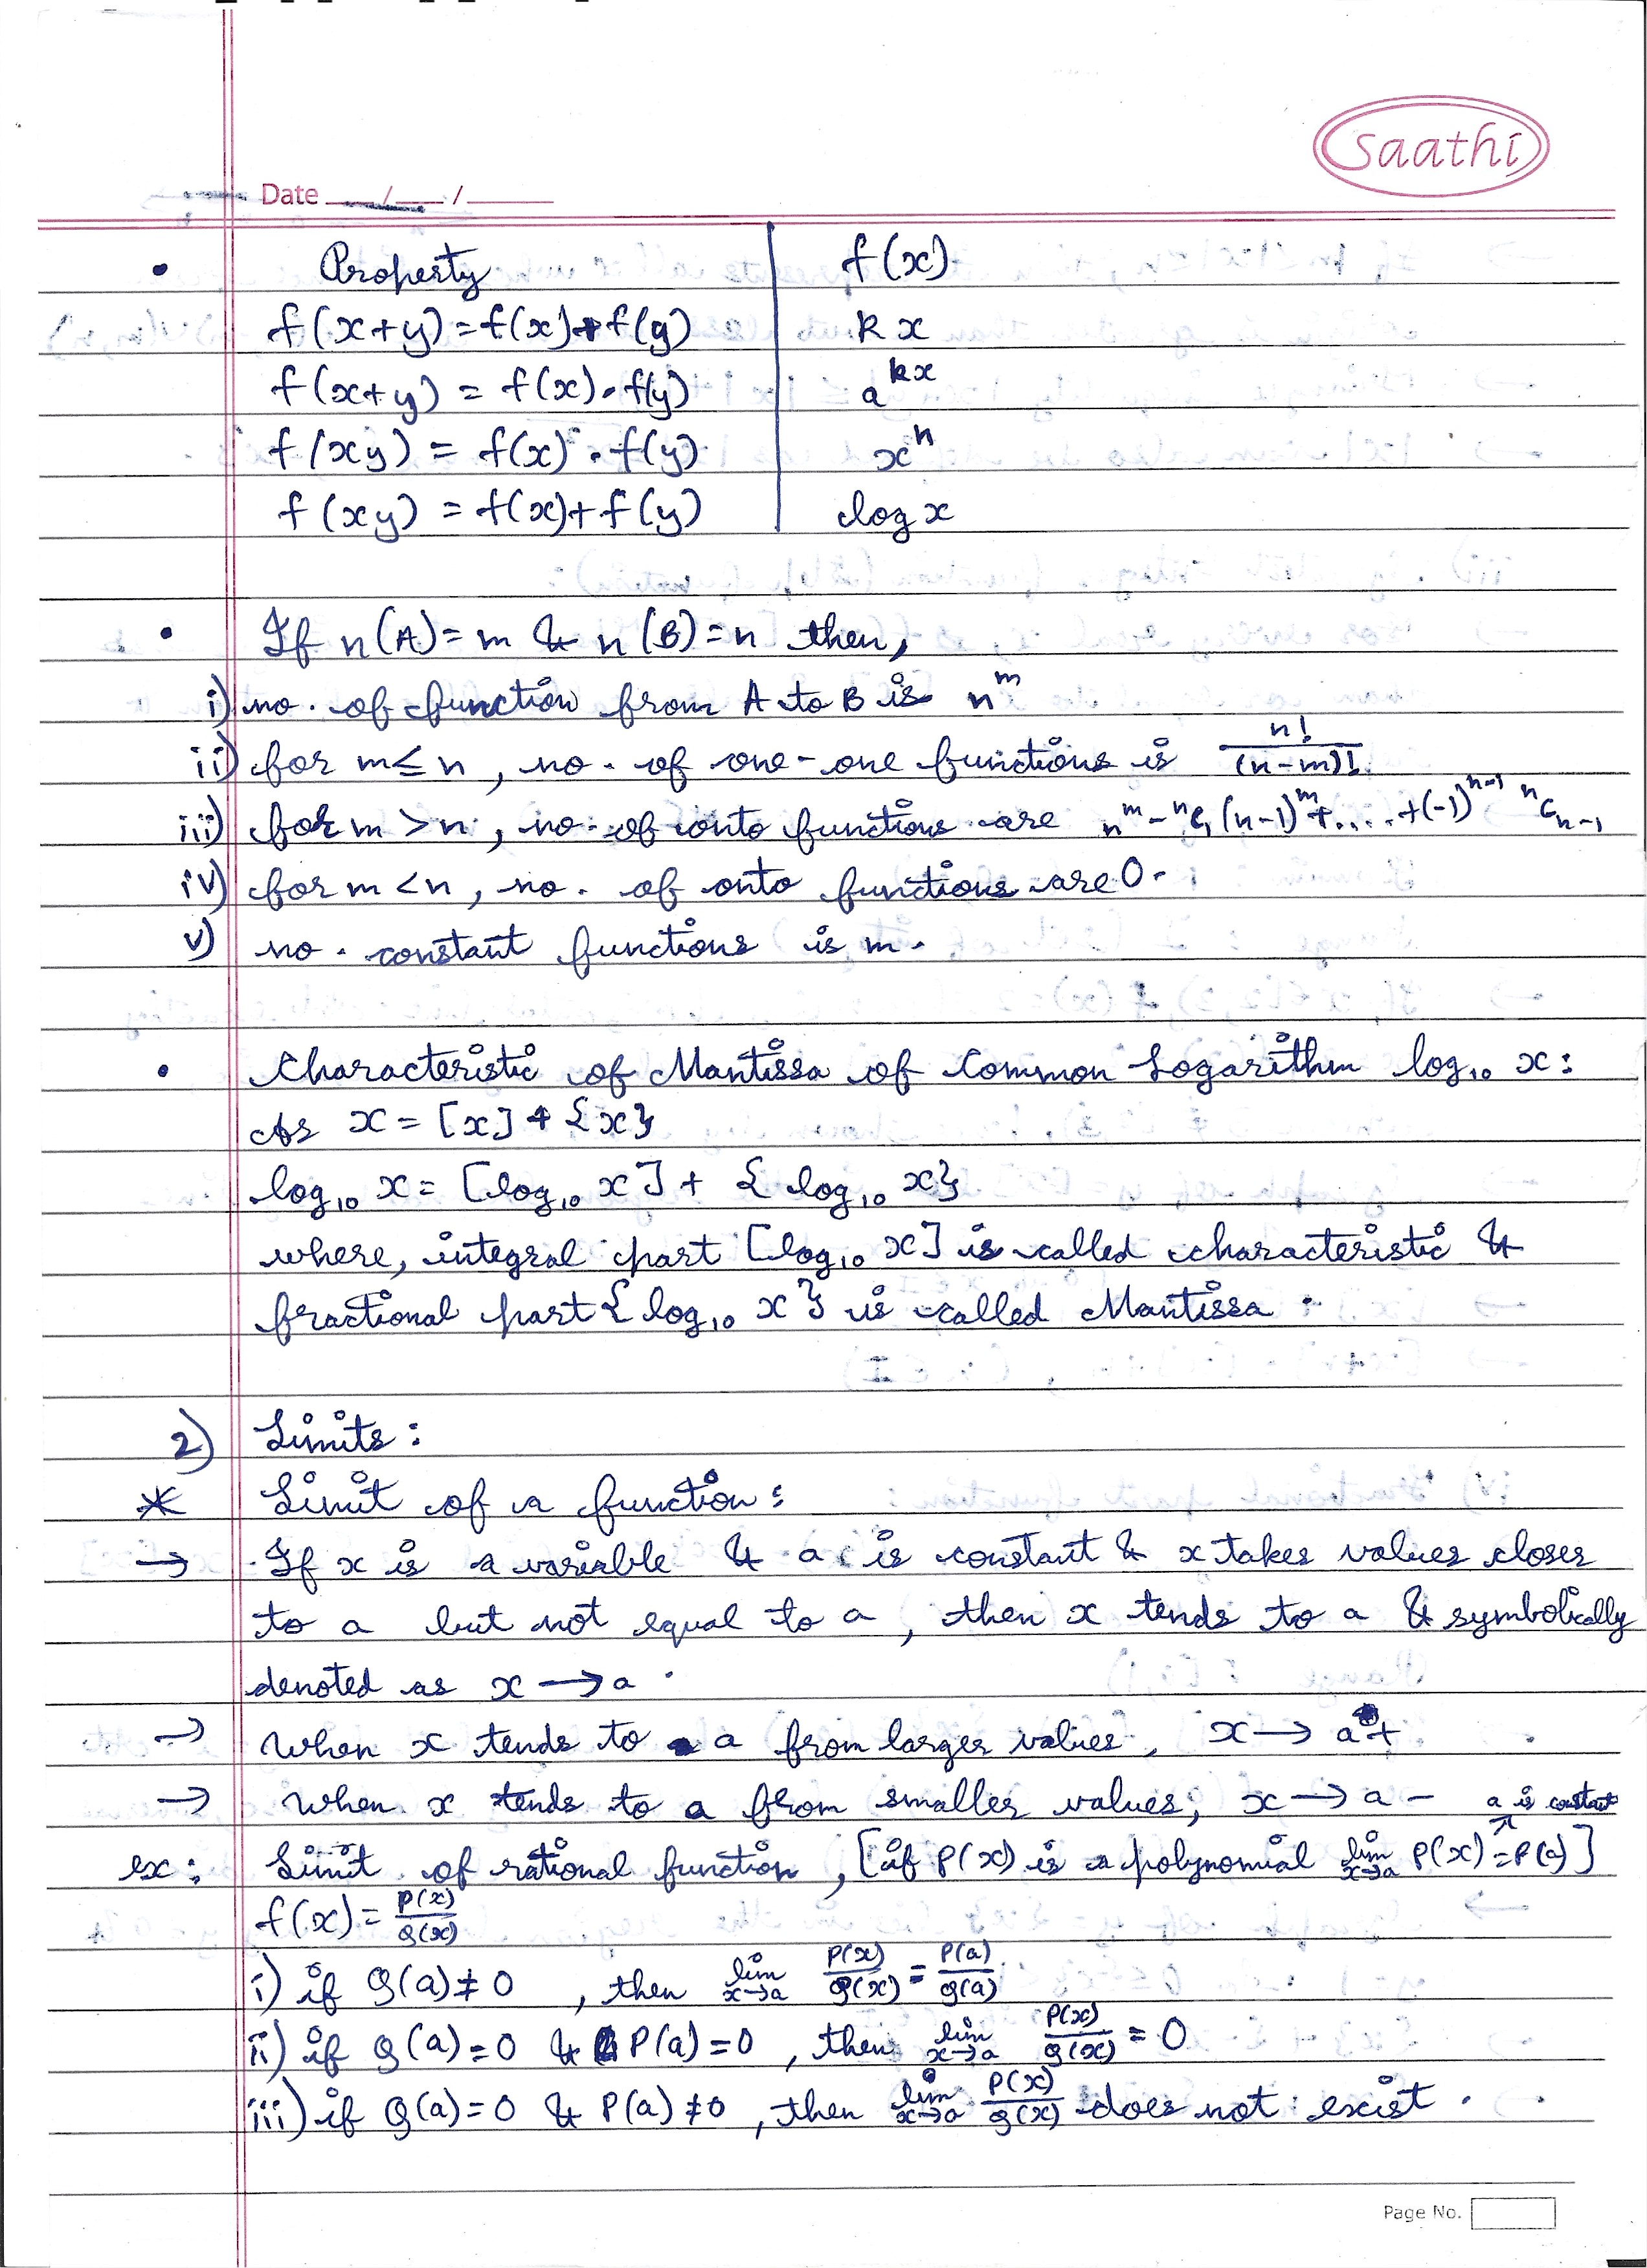 Saathi
Date ___/___/______
• Property | f(x)
f(x+y)=f(x)+f(y) | kx
f(x+y) = f(x).f(y) | a^kx
f(xy) = f(x).f(y) | x^n
f(xy) = f(x)+f(y) | log x
• If n(A)=m & n(B)=n then,
i) no. of function from A to B is n^m
ii) for m≤n, no. of one-one functions is n!/(n-m)!
iii) for m>n, no. of onto functions are n^m - ^nC₁(n-1)^m+....+(-1)^(n-1) ^nC_(n-1)
iv) for m<n, no. of onto functions are 0.
v) no. constant functions is m.
• Characteristic of Mantissa of Common Logarithm log₁₀ x:
As x=[x]+{x}
log₁₀ x= [log₁₀ x]+ {log₁₀ x}
where, integral part [log₁₀ x] is called characteristic &
fractional part {log₁₀ x} is called Mantissa.
2) Limits:
* Limit of a function:
→ If x is a variable & a is constant & x takes values closer
to a but not equal to a, then x tends to a & symbolically
denoted as x→a.
→ When x tends to a from larger values, x→a+
→ When x tends to a from smaller values, x→a- a is constant
ex: Limit of rational function, [if P(x) is a polynomial lim x→a P(x)=P(a)]
f(x)= P(x)/Q(x)
i) if Q(a)≠0, then lim x→a P(x)/Q(x) = P(a)/Q(a)
ii) if Q(a)=0 & P(a)=0, then lim x→a P(x)/Q(x) = 0
iii) if Q(a)=0 & P(a)≠0, then lim x→a P(x)/Q(x) does not exist.
Page No.